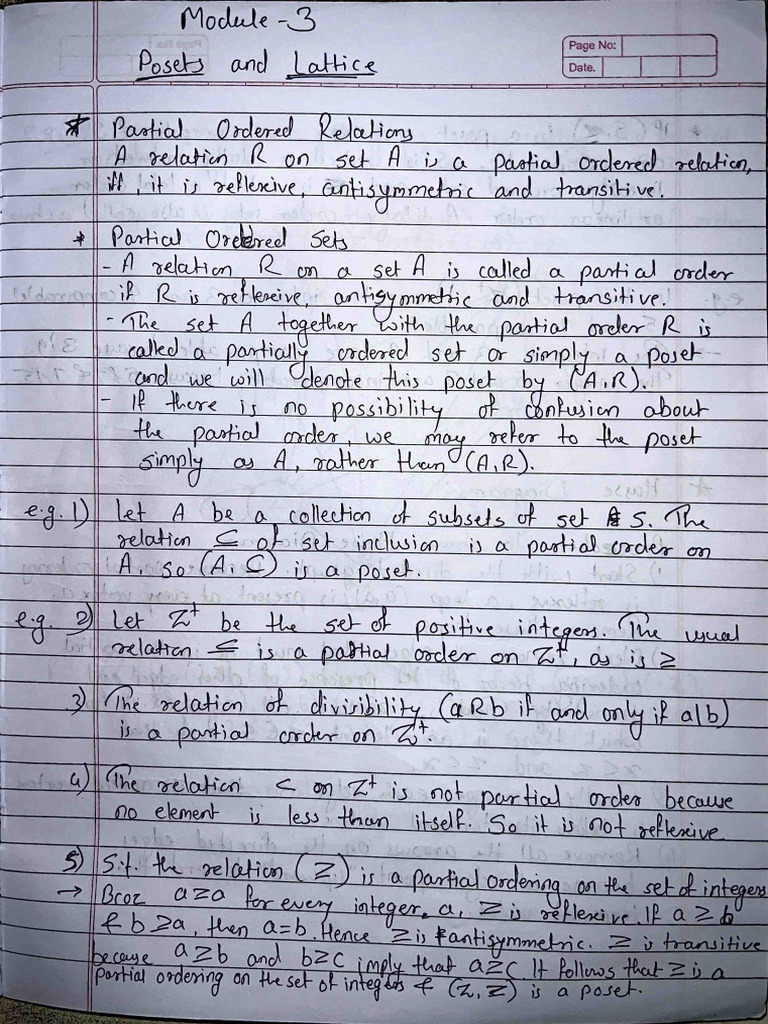 Module - 3
Posets and Lattice
Page No:
Date.
* Partial Ordered Relations
A relation R on set A is a partial ordered relation,
iff, it is reflexive, antisymmetric and transitive.
* Partial Ordered Sets
- A relation R on a set A is called a partial order
if R is reflexive, antisymmetric and transitive.
- The set A together with the partial order R is
called a partially ordered set or simply a poset
and we will denote this poset by (A,R).
- If there is no possibility of confusion about
the partial order, we may refer to the poset
simply as A, rather than (A,R).
e.g. 1) Let A be a collection of subsets of set S. The
relation ⊆ of set inclusion is a partial order on
A, so (A, ⊆) is a poset.
e.g. 2) Let Z⁺ be the set of positive integers. The usual
relation ≤ is a partial order on Z⁺, as is ≥
3) The relation of divisibility (aRb if and only if a|b)
is a partial order on Z⁺.
4) The relation < on Z⁺ is not partial order because
no element is less than itself. So it is not reflexive
5) S.t. the relation (≥) is a partial ordering on the set of integers
→ Bcoz a≥a for every integer a, ≥ is reflexive. If a≥b
& b≥a, then a=b. Hence ≥ is antisymmetric. ≥ is transitive
because a≥b and b≥c imply that a≥c. It follows that ≥ is a
partial ordering on the set of integers & (Z,≥) is a poset.